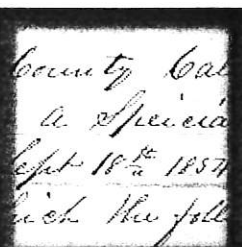 County Cal
a Speicia
Sept 18th 1854
hich the foll